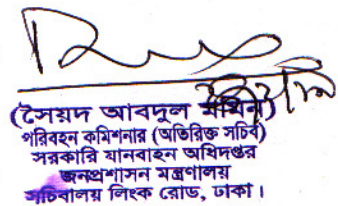 (সৈয়দ আবদুল মমিন)
পরিবহন কমিশনার (অতিরিক্ত সচিব)
সরকারি যানবাহন অধিদপ্তর
জনপ্রশাসন মন্ত্রণালয়
সচিবালয় লিংক রোড, ঢাকা।